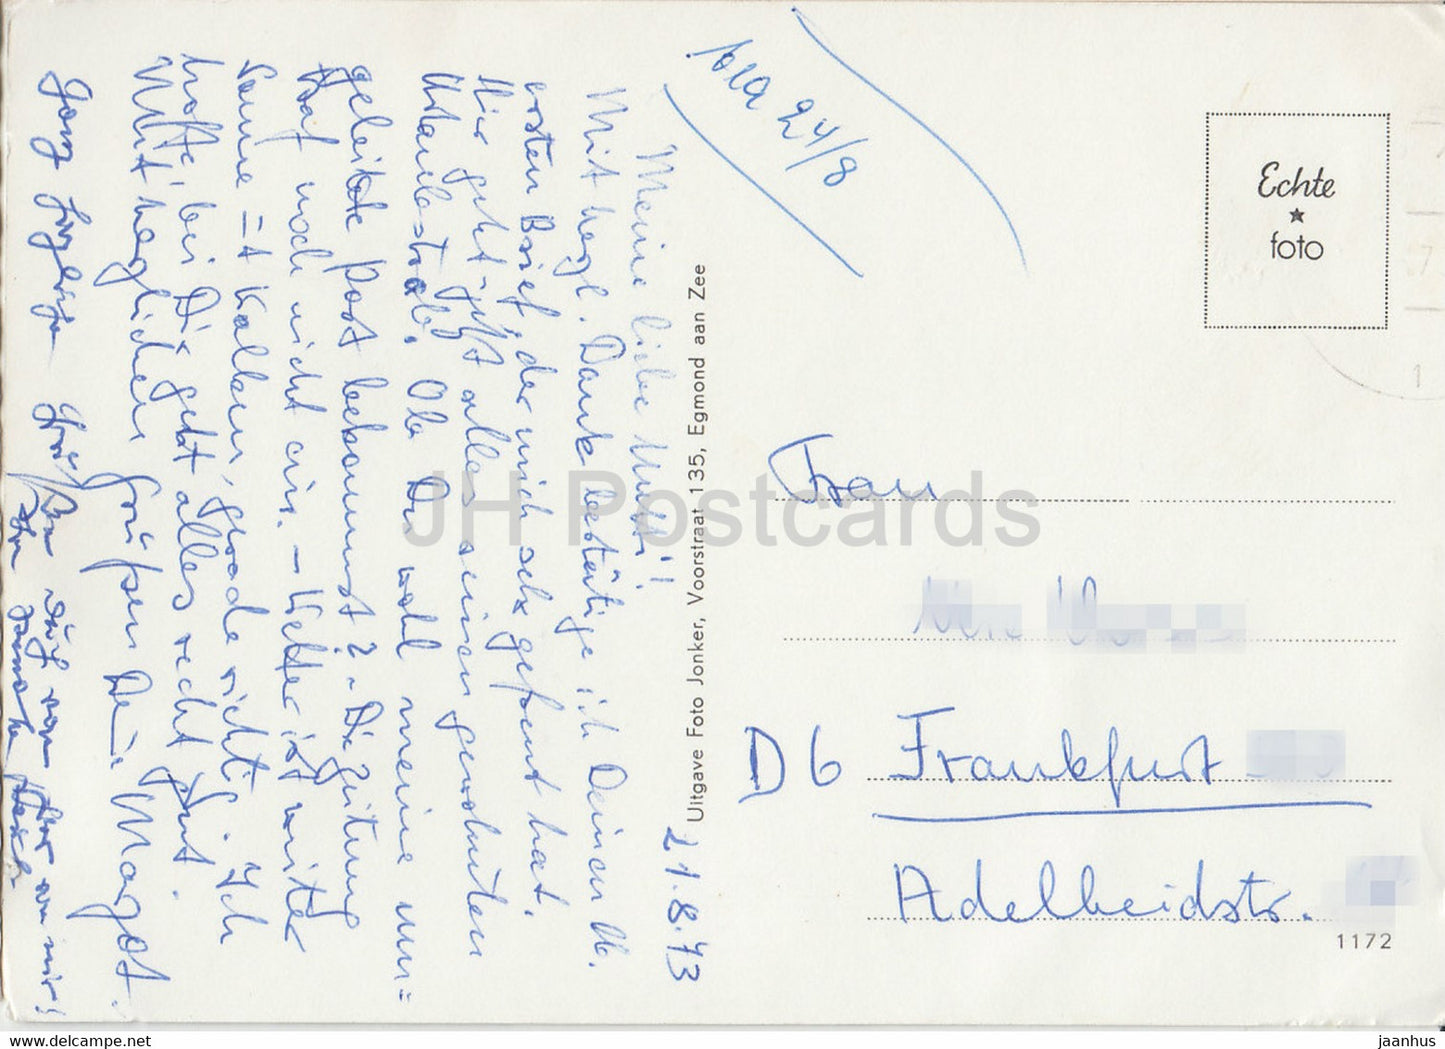 21.8.73
Meine liebe Mutti!
Mit herzl. Dank bestätige ich Deinen lb.
ersten Brief, der mich sehr gefreut hat.
Hier geht jetzt alles seinen gewohnten
Urlaubstrab. Ob Du wohl meine um=
geleitete Post bekommst? - Die Zeitung
traf noch nicht ein. - Wetter ist weiter
Sonne = + Kaltern, gerade richtig. Ich
hoffe, bei Dir geht alles recht gut.
Mit herzlichen Grüßen Deine Margot.
Ganz herzliche
auch von
von mir!
Uitgave Foto Jonker, Voorstraat 135, Egmond aan Zee
24/8
Echte
foto
Frau
D 6 Frankfurt
Adelheidstr.
1172
JH Postcards
www.delcampe.net
jaanhus